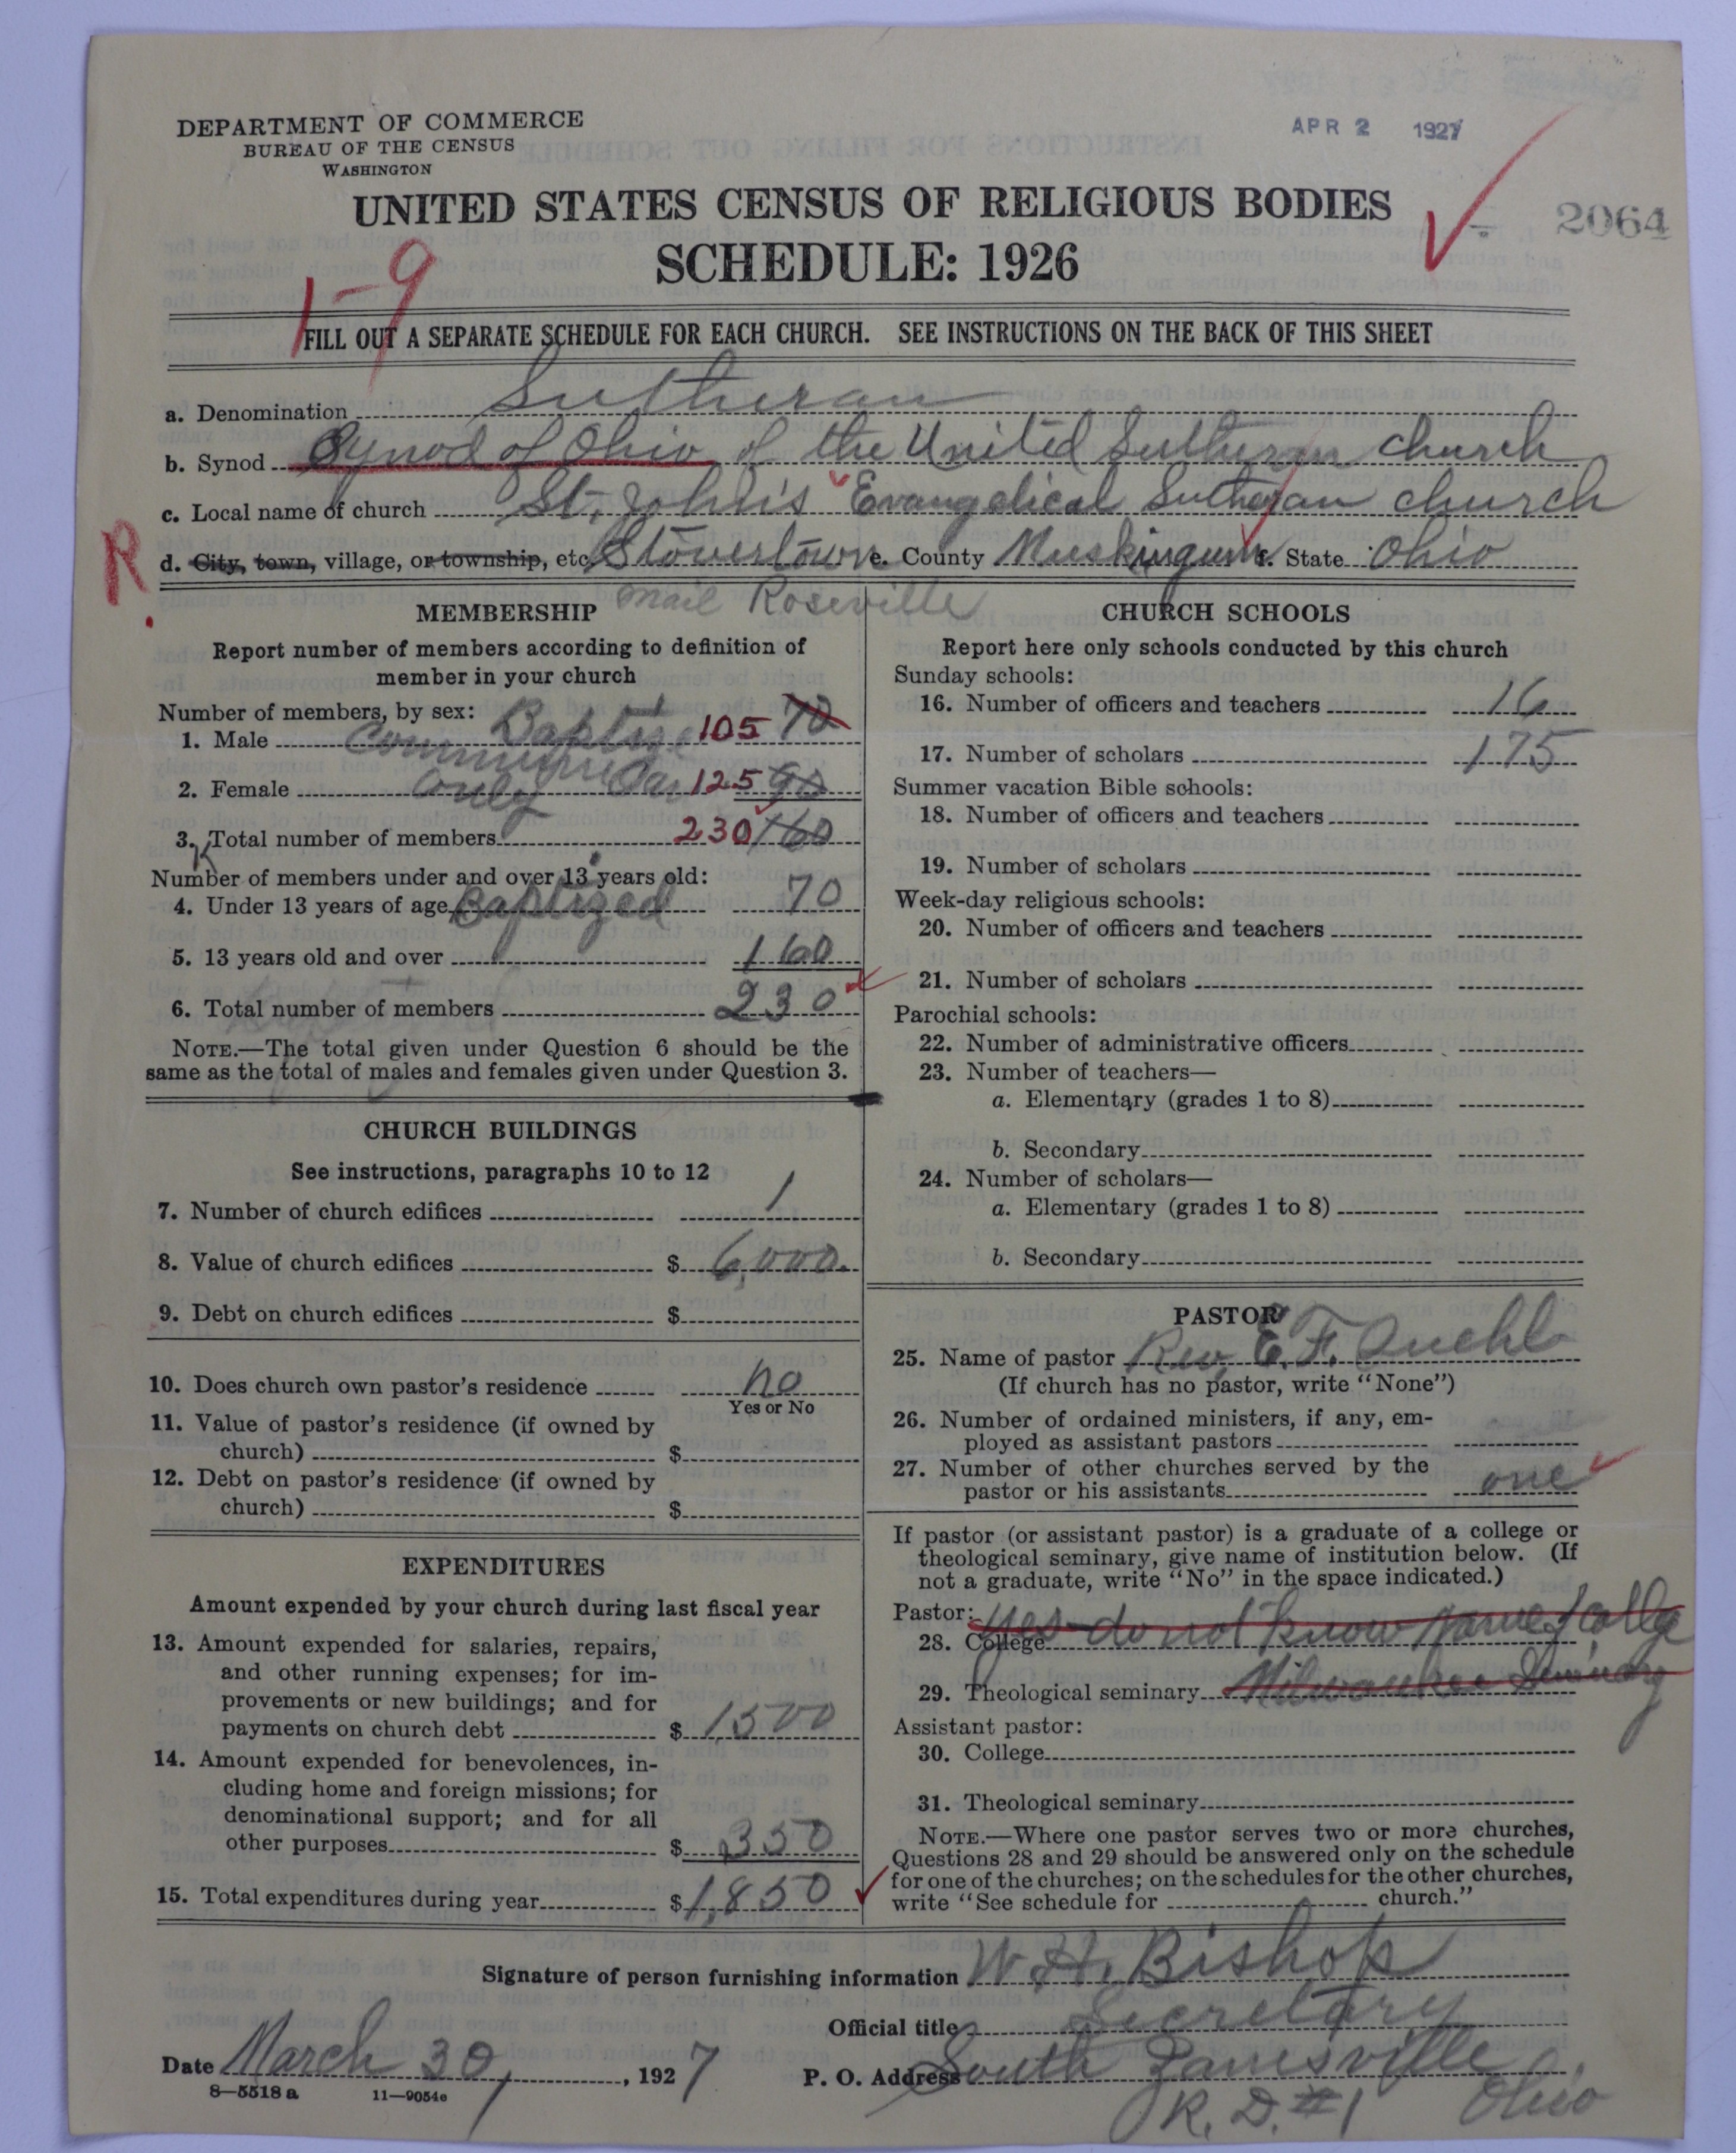 DEPARTMENT OF COMMERCE
BUREAU OF THE CENSUS
WASHINGTON
APR 2 1927
UNITED STATES CENSUS OF RELIGIOUS BODIES
SCHEDULE: 1926
2064
1-9
FILL OUT A SEPARATE SCHEDULE FOR EACH CHURCH. SEE INSTRUCTIONS ON THE BACK OF THIS SHEET
a. Denomination Lutheran
b. Synod Synod of Ohio of the United Lutheran church
c. Local name of church St. John's Evangelical Lutheran church
R.
d. City, town, village, or township, etc. Stovertown e. County Muskingum f. State Ohio
mail Roseville
MEMBERSHIP
Report number of members according to definition of
member in your church
Number of members, by sex:
1. Male Baptize 105 70
Communican
2. Female only 125 90
3. Total number of members 230 160
Number of members under and over 13 years old:
4. Under 13 years of age Baptized 70
5. 13 years old and over 160
6. Total number of members 230
NOTE.—The total given under Question 6 should be the
same as the total of males and females given under Question 3.
CHURCH BUILDINGS
See instructions, paragraphs 10 to 12
7. Number of church edifices 1
8. Value of church edifices $ 6,000.
9. Debt on church edifices $
10. Does church own pastor's residence no
Yes or No
11. Value of pastor's residence (if owned by
church) $
12. Debt on pastor's residence (if owned by
church) $
EXPENDITURES
Amount expended by your church during last fiscal year
13. Amount expended for salaries, repairs,
and other running expenses; for im-
provements or new buildings; and for
payments on church debt $ 1500
14. Amount expended for benevolences, in-
cluding home and foreign missions; for
denominational support; and for all
other purposes $ 350
15. Total expenditures during year $ 1,850
CHURCH SCHOOLS
Report here only schools conducted by this church
Sunday schools:
16. Number of officers and teachers 16
17. Number of scholars 175
Summer vacation Bible schools:
18. Number of officers and teachers
19. Number of scholars
Week-day religious schools:
20. Number of officers and teachers
21. Number of scholars
Parochial schools:
22. Number of administrative officers
23. Number of teachers—
a. Elementary (grades 1 to 8)
b. Secondary
24. Number of scholars—
a. Elementary (grades 1 to 8)
b. Secondary
PASTOR
25. Name of pastor Rev. E. F.
(If church has no pastor, write "None")
26. Number of ordained ministers, if any, em-
ployed as assistant pastors
27. Number of other churches served by the
pastor or his assistants one
If pastor (or assistant pastor) is a graduate of a college or
theological seminary, give name of institution below. (If
not a graduate, write "No" in the space indicated.)
Pastor:
28. College yes do not know name of college
29. Theological seminary Milwaukee Seminary
Assistant pastor:
30. College
31. Theological seminary
NOTE.—Where one pastor serves two or more churches,
Questions 28 and 29 should be answered only on the schedule
for one of the churches; on the schedules for the other churches,
write "See schedule for church."
Signature of person furnishing information W. H. Bishop
Official title Secretary
Date March 30, 1927 P. O. Address South Zanesville
R. D. #1 Ohio
8—5518 a 11—9054c